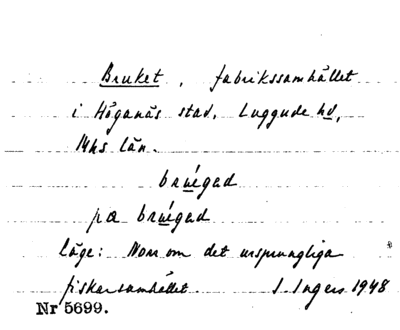 Bruket, fabrikssamhället
i Höganäs stad, Luggude hd,
Mhs län.
bruégad
pæ bruégad
Läge: Norr om det ursprungliga
fiskarsamhället. I. Ingers 1948
Nr 5699.